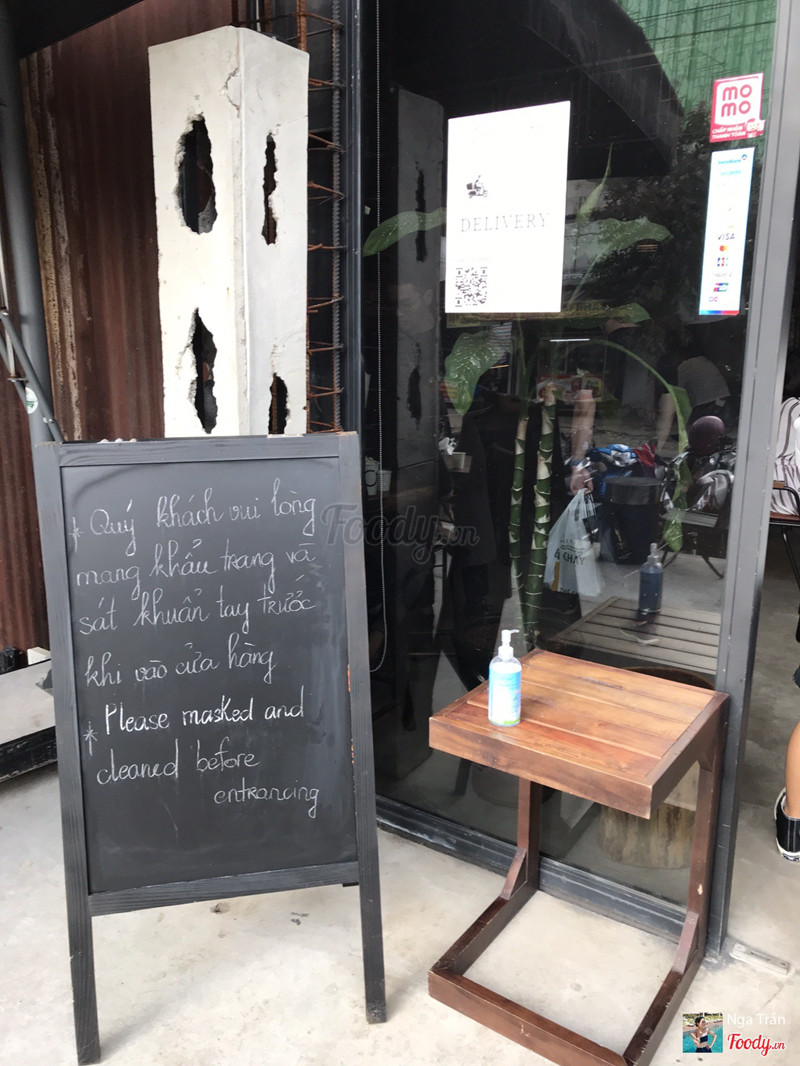 mo
mo
CHẤP NHẬN
THANH TOÁN
DELIVERY
VISA
Quý khách vui lòng
mang khẩu trang và
sát khuẩn tay TRƯỚC
khi vào cửa hàng
Please masked and
cleaned before
entrancing
Foody.vn
CHAY
Nga Trần
Foody.vn